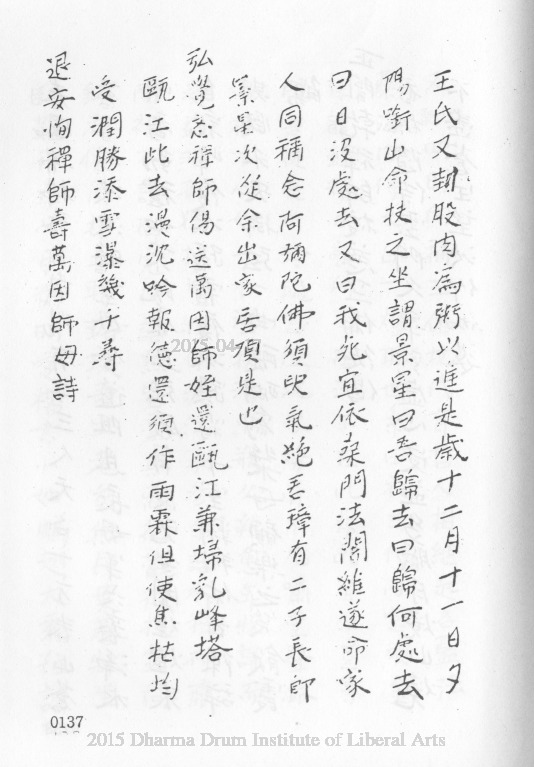 王氏又封股肉為粥以進是歲十二月十一日夕
陽嘶山命扶之坐謂景星曰吾歸去曰歸何處去
曰日沒處去又曰我死宜依桑門法闍維遂命家
人同稱念阿彌陀佛須臾氣絕吾璋有二子長即
景星次從余出家吾項是也
弘覺忞禪師偈送萬因師姪還甌江兼埽乳峰塔
甌江此去漫沈吟報德還須作雨霖但使焦枯均
受潤勝添雪瀑幾千尋
退安恂禪師壽萬因師母詩
2015-04
0137
2015 Dharma Drum Institute of Liberal Arts